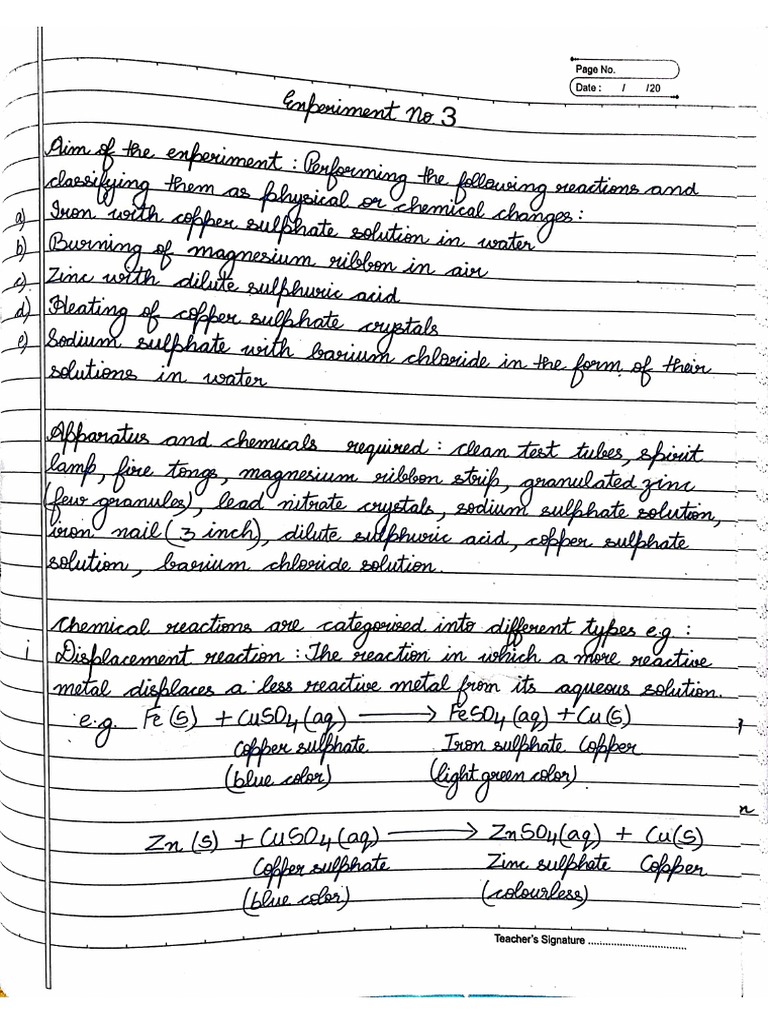 Page No.
Date : / /20
Experiment No 3
Aim of the experiment : Performing the following reactions and
classifying them as physical or chemical changes :
a) Iron with copper sulphate solution in water
b) Burning of magnesium ribbon in air
c) Zinc with dilute sulphuric acid
d) Heating of copper sulphate crystals
e) Sodium sulphate with barium chloride in the form of their
solutions in water
Apparatus and chemicals required : clean test tubes, spirit
lamp, fire tongs, magnesium ribbon strip, granulated zinc
(few granules), lead nitrate crystals, sodium sulphate solution,
iron nail (3 inch), dilute sulphuric acid, copper sulphate
solution, barium chloride solution.
Chemical reactions are categorised into different types e.g :
i Displacement reaction : The reaction in which a more reactive
metal displaces a less reactive metal from its aqueous solution.
e.g. Fe (s) + CuSO4 (aq) → FeSO4 (aq) + Cu (s)
Copper sulphate Iron sulphate Copper
(blue color) (light green color)
n
Zn (s) + CuSO4 (aq) → ZnSO4 (aq) + Cu (s)
Copper sulphate Zinc sulphate Copper
(blue color) (colourless)
Teacher's Signature ................................